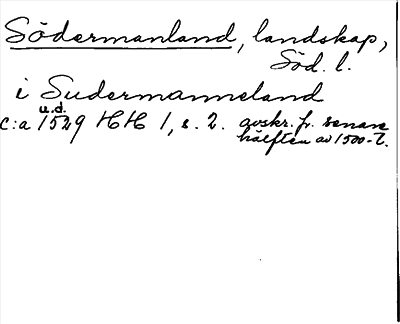 Södermanland, landskap,
Söd. l.
i Sudermanneland
u.d.
c:a 1529 HH 1, s. 2. avskr. fr. senare
hälften av 1500-t.